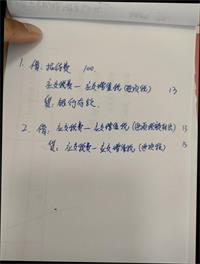 1. 借: 招待费 100
应交税费—应交增值税(进项税) 13
贷: 银行存款
2. 借: 应交税费—应交增值税(进项税额转出) 13
贷: 应交税费—应交增值税(进项税) 13